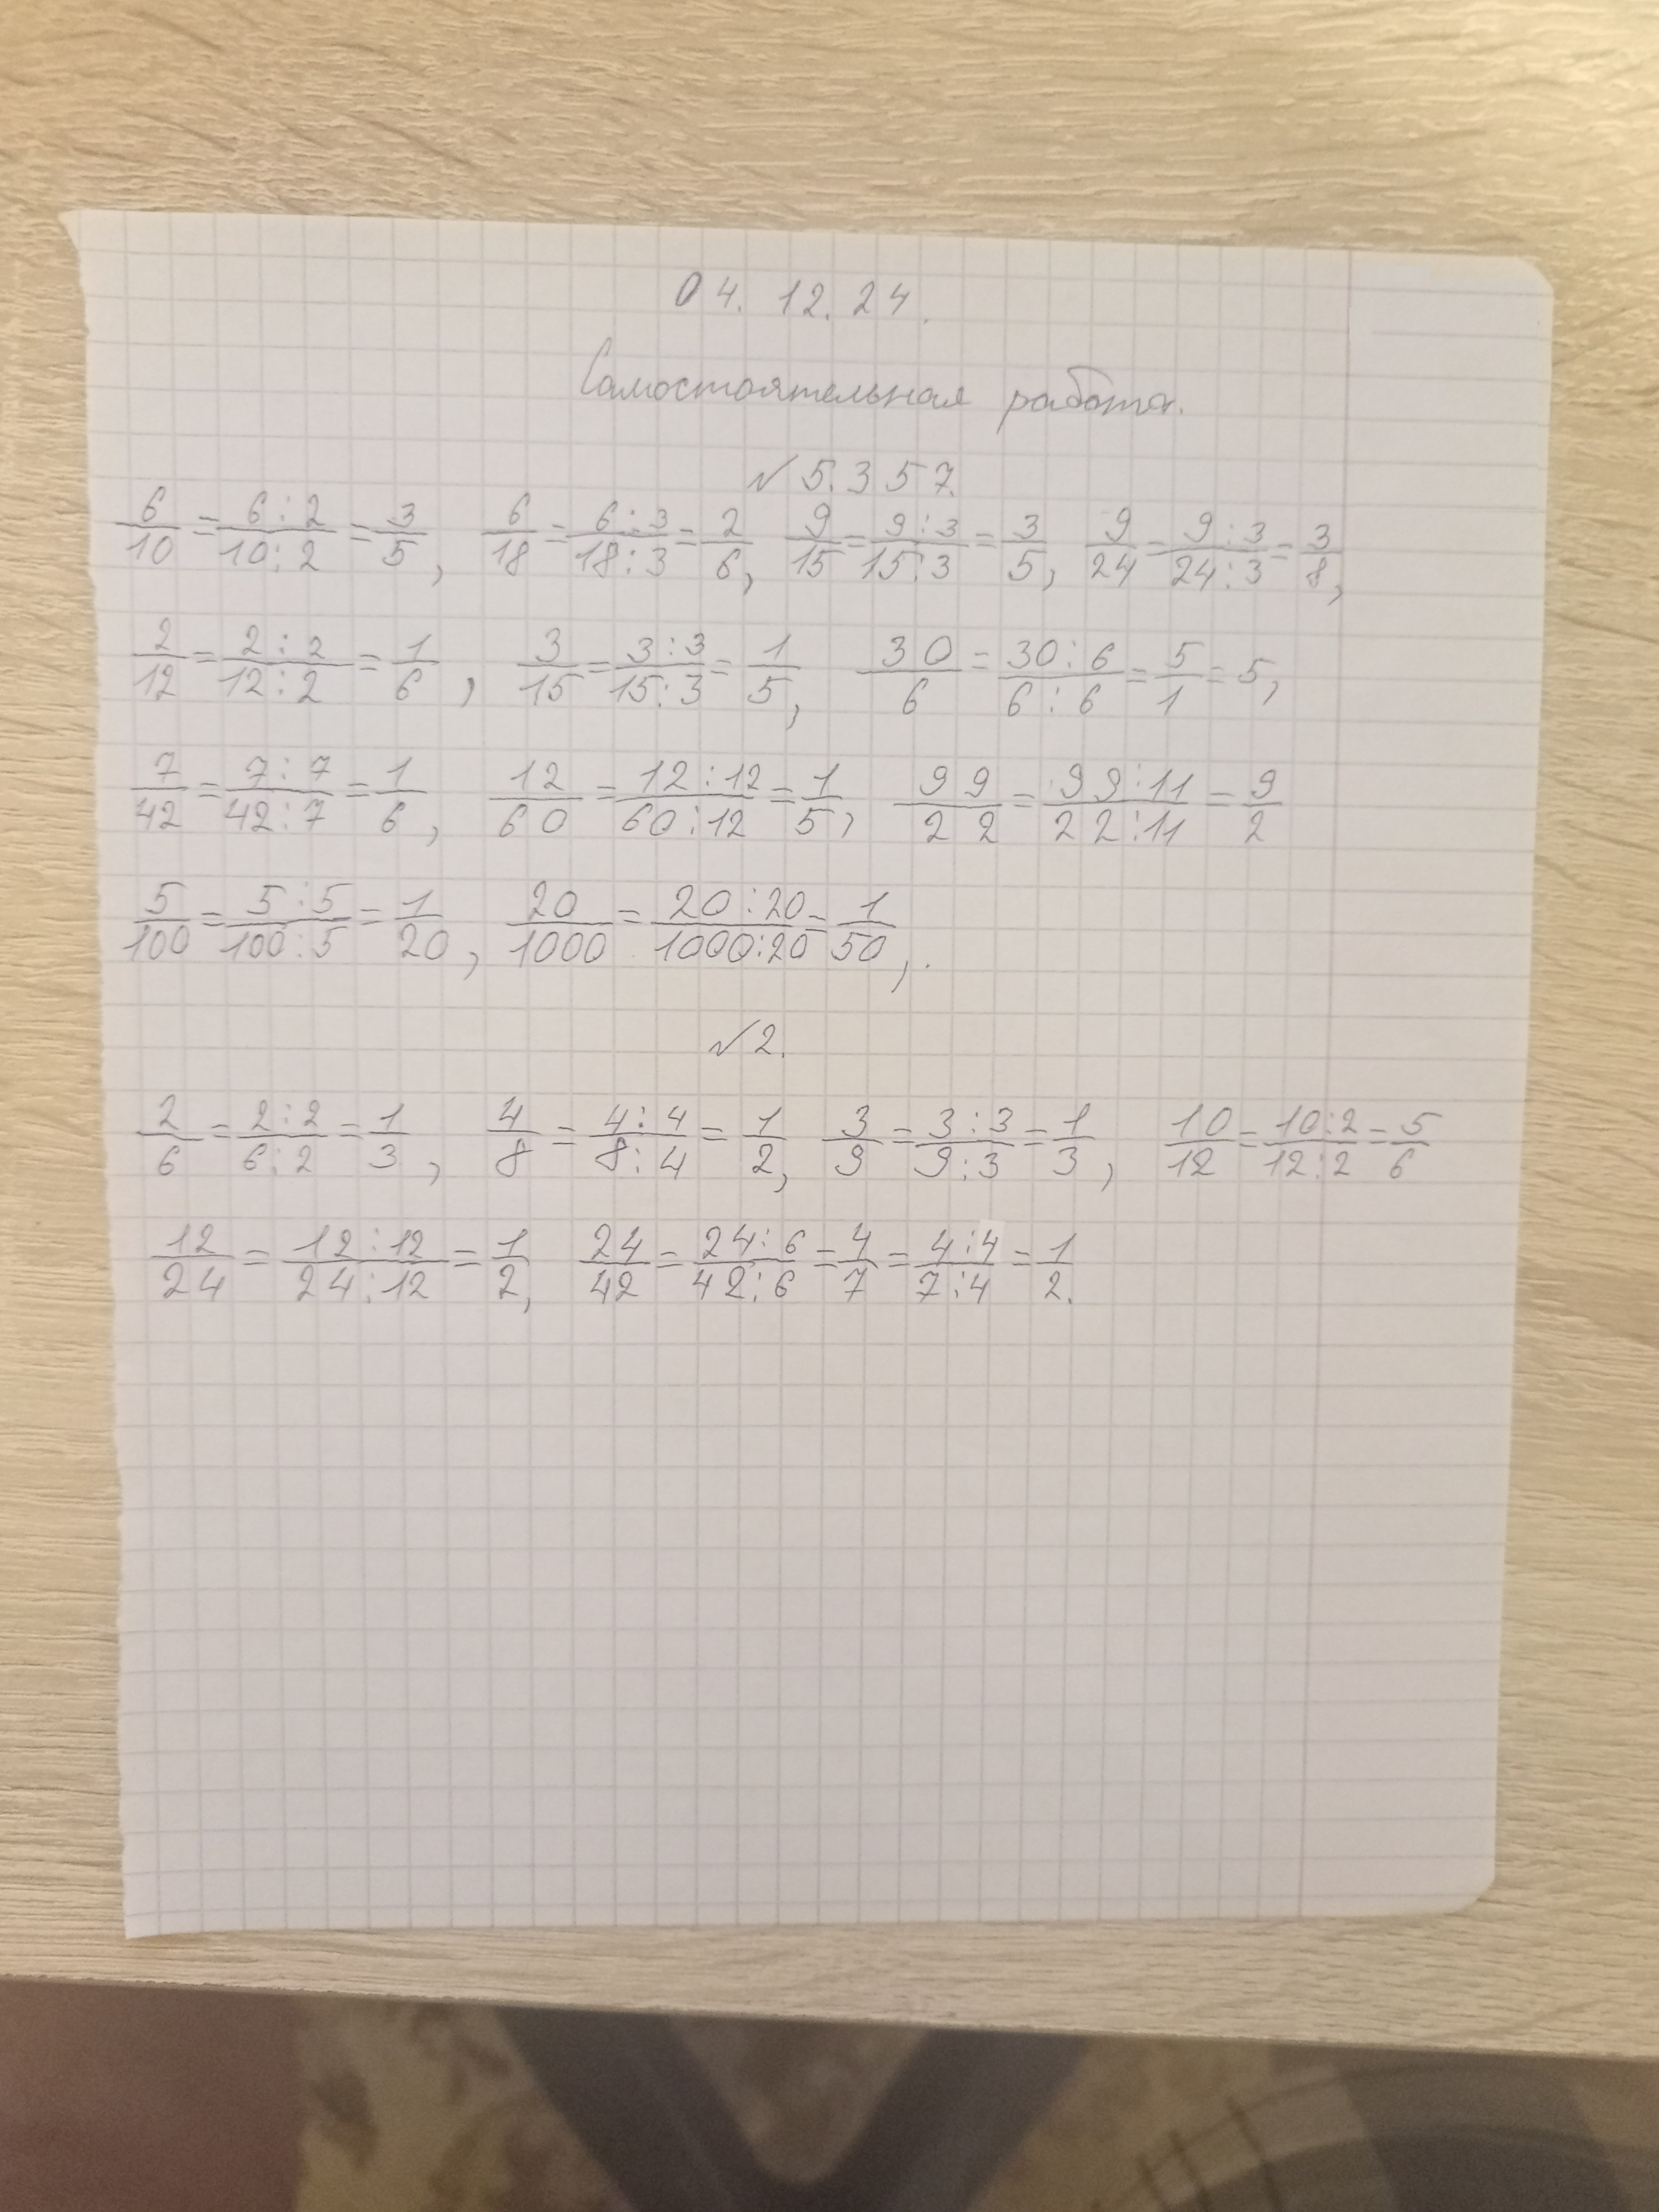 04.12.24.
Самостоятельная работа.
№5.357.
6/10 = 6:2/10:2 = 3/5, 6/18 = 6:3/18:3 = 2/6, 9/15 = 9:3/15:3 = 3/5, 9/24 = 9:3/24:3 = 3/8,
2/12 = 2:2/12:2 = 1/6, 3/15 = 3:3/15:3 = 1/5, 30/6 = 30:6/6:6 = 5/1 = 5,
7/42 = 7:7/42:7 = 1/6, 12/60 = 12:12/60:12 = 1/5, 99/22 = 99:11/22:11 = 9/2
5/100 = 5:5/100:5 = 1/20, 20/1000 = 20:20/1000:20 = 1/50,.
№2.
2/6 = 2:2/6:2 = 1/3, 4/8 = 4:4/8:4 = 1/2, 3/9 = 3:3/9:3 = 1/3, 10/12 = 10:2/12:2 = 5/6
12/24 = 12:12/24:12 = 1/2, 24/42 = 24:6/42:6 = 4/7 = 4:4/7:4 = 1/2.